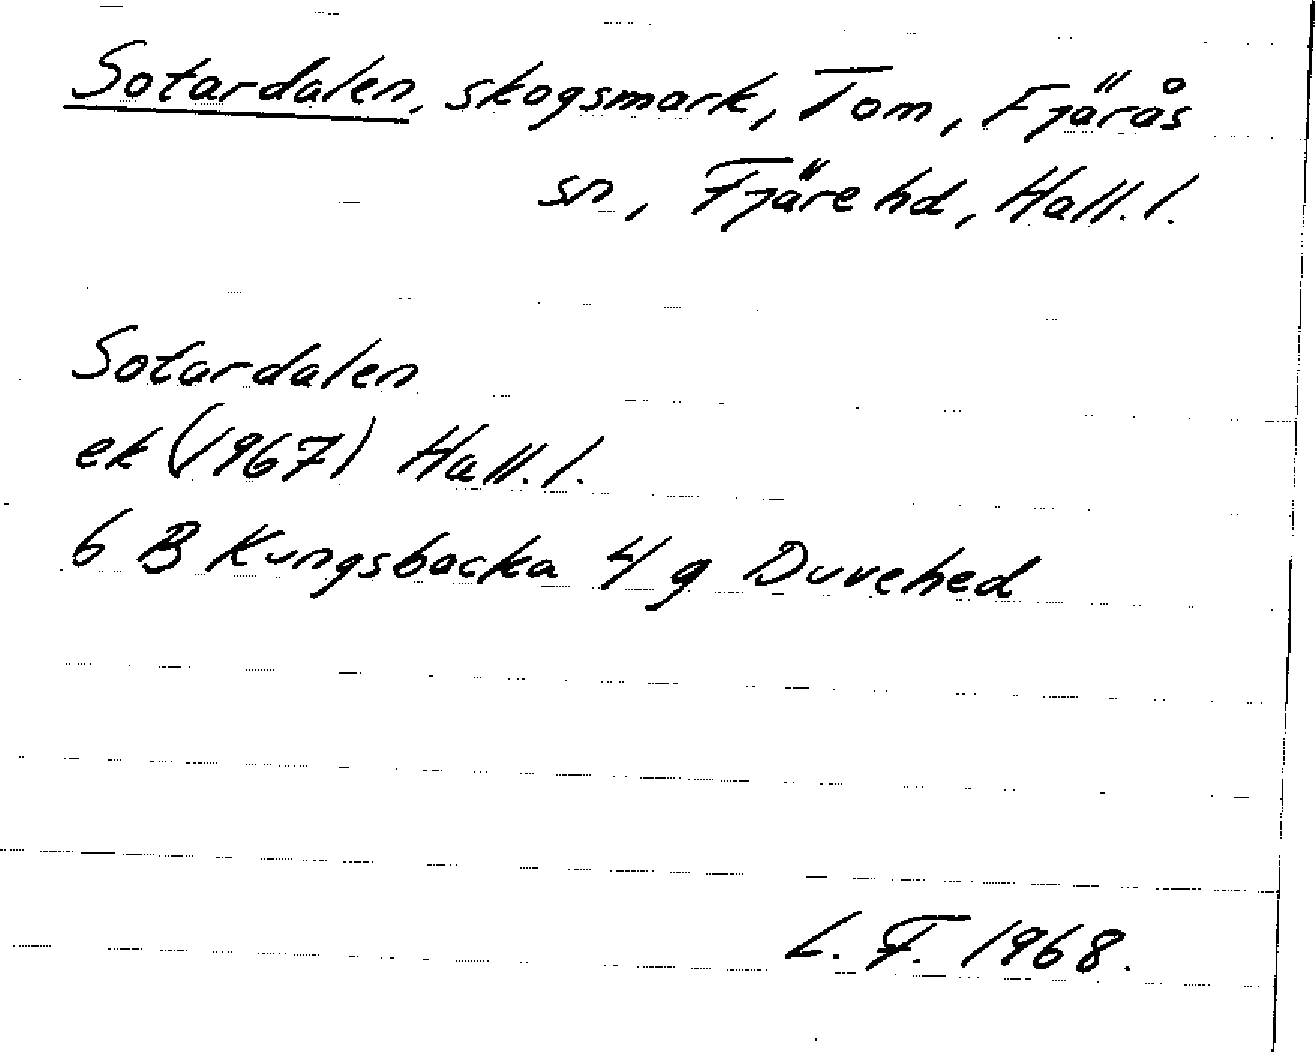 Sotardalen, skogsmark, Tom, Fjärås
sn, Fjäre hd, Hall. l.
Sotardalen
ek (1967) Hall. l.
6 B Kungsbacka 4 g Duvehed
L. F. 1968.